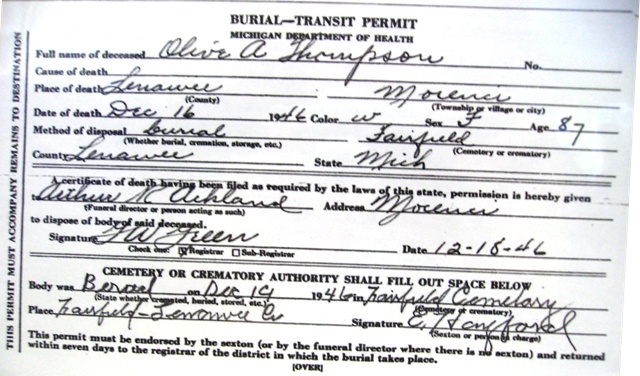 BURIAL—TRANSIT PERMIT
MICHIGAN DEPARTMENT OF HEALTH
Full name of deceased Olive A Thompson No.
Cause of death
Place of death Lenawee Morenci
(County) (Township or village or city)
Date of death Dec 16 1946 Color w Sex F Age 87
Method of disposal burial Fairfield
(Whether burial, cremation, storage, etc.) (Cemetery or crematory)
County Lenawee State Mich
A certificate of death having been filed as required by the laws of this state, permission is hereby given
Arthur R Ackland Address Morenci
(Funeral director or person acting as such)
to dispose of body of said deceased.
Signature Date 12-18-46
Check one: Registrar Sub-Registrar
CEMETERY OR CREMATORY AUTHORITY SHALL FILL OUT SPACE BELOW
Body was Beried on Dec 19 1946 in Fairfield Cemetary
(State whether cremated, buried, stored, etc.) (Cemetery or crematory)
Place Fairfield - Lenawee Co Signature E. Hayford
(Sexton or person in charge)
This permit must be endorsed by the sexton (or by the funeral director where there is no sexton) and returned
within seven days to the registrar of the district in which the burial takes place.
[OVER]
THIS PERMIT MUST ACCOMPANY REMAINS TO DESTINATION